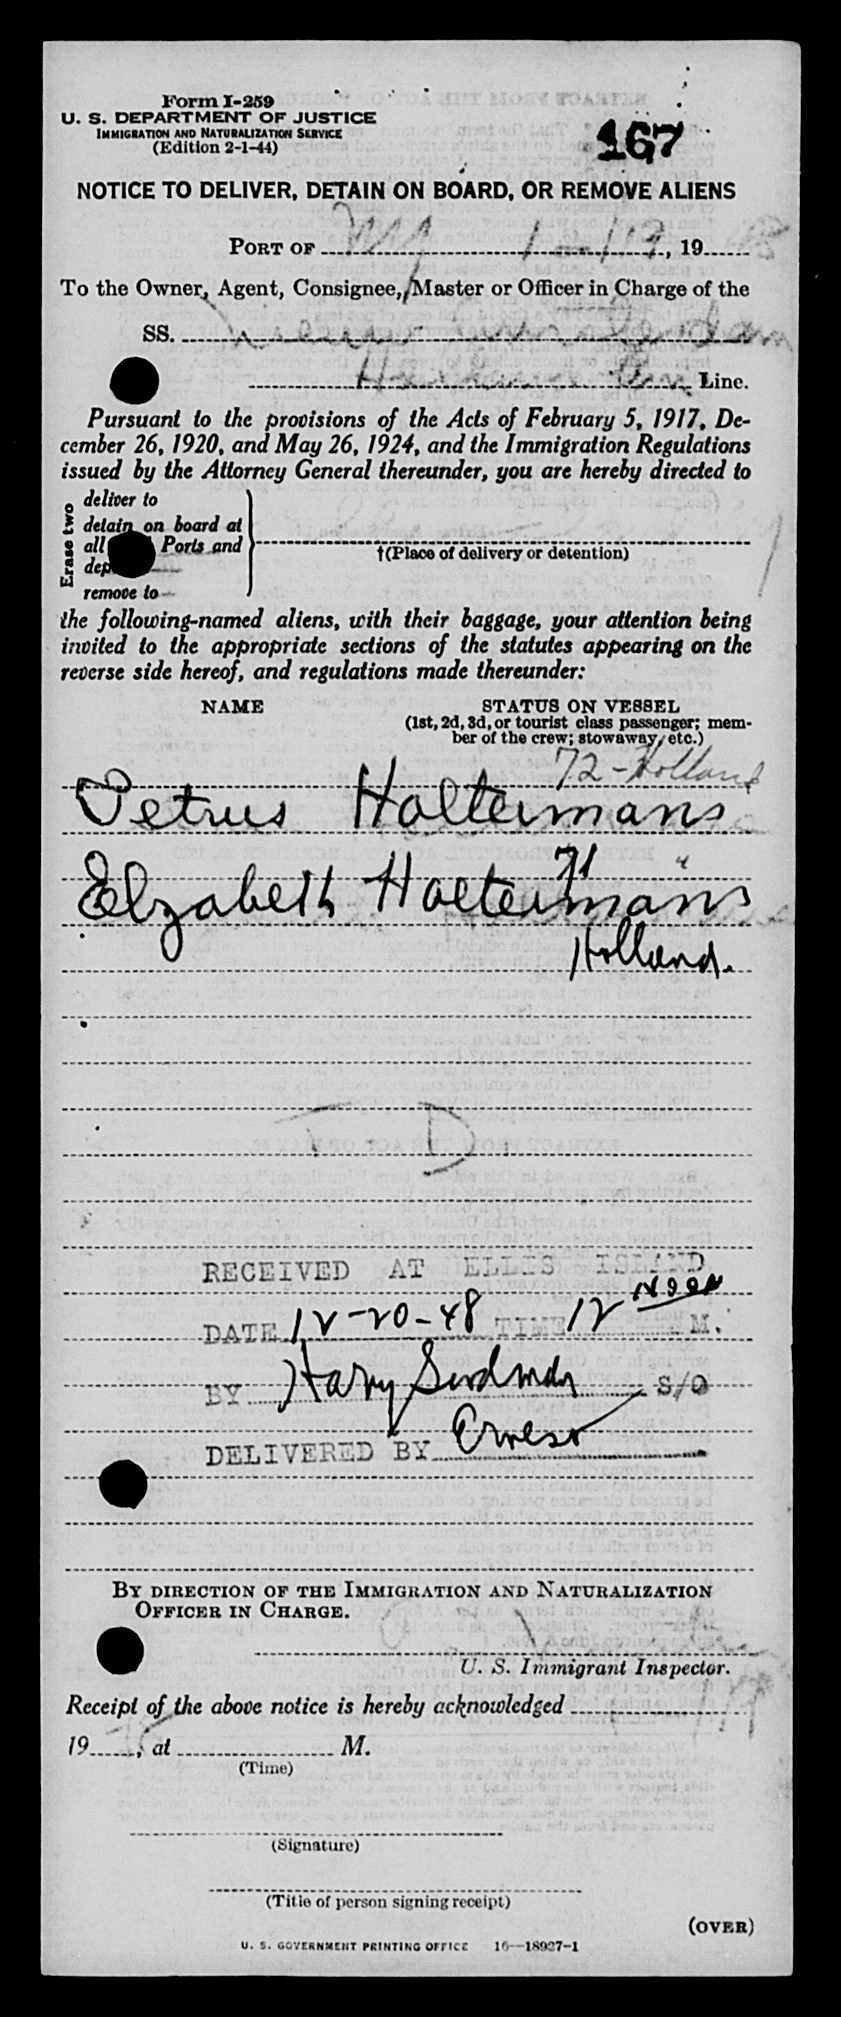 Form I-259
U. S. DEPARTMENT OF JUSTICE
IMMIGRATION AND NATURALIZATION SERVICE
(Edition 2-1-44)
167
NOTICE TO DELIVER, DETAIN ON BOARD, OR REMOVE ALIENS
PORT OF NY 12/19, 1948
To the Owner, Agent, Consignee, Master or Officer in Charge of the
SS. Nieuw Amsterdam
Line.
Pursuant to the provisions of the Acts of February 5, 1917, De-
cember 26, 1920, and May 26, 1924, and the Immigration Regulations
issued by the Attorney General thereunder, you are hereby directed to
Erase two
deliver to
detain on board at
all Ports and
remove to
†(Place of delivery or detention)
the following-named aliens, with their baggage, your attention being
invited to the appropriate sections of the statutes appearing on the
reverse side hereof, and regulations made thereunder:
NAME STATUS ON VESSEL
(1st, 2d, 3d, or tourist class passenger; mem-
ber of the crew; stowaway, etc.)
72-Holland
Petrus Holtermans
71 "
Elzabeth Holtermans
Holland.
T D
RECEIVED AT ELLIS ISLAND
DATE 12-20-48 TIME 12 Noon M.
BY Harry S/O
DELIVERED BY
BY DIRECTION OF THE IMMIGRATION AND NATURALIZATION
OFFICER IN CHARGE.
U. S. Immigrant Inspector.
Receipt of the above notice is hereby acknowledged
19 , at M.
(Time)
(Signature)
(Title of person signing receipt)
(OVER)
U. S. GOVERNMENT PRINTING OFFICE 16—18927-1